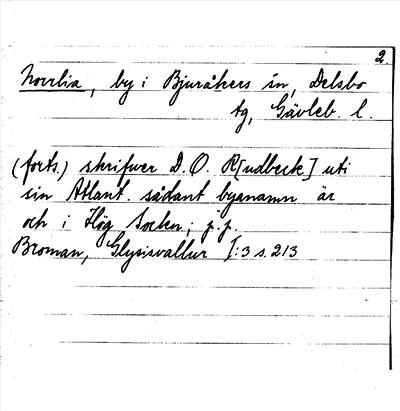 2.
Norrlia, by i Bjuråkers sn, Delsbo
tg, Gävleb. l.
(forts.) skrifwer D. O. R[udbeck] uti
sin Atlant. sådant byanamn är
och i Hög Socken; p.p.
Broman, Glysisvallur I:3 s. 213